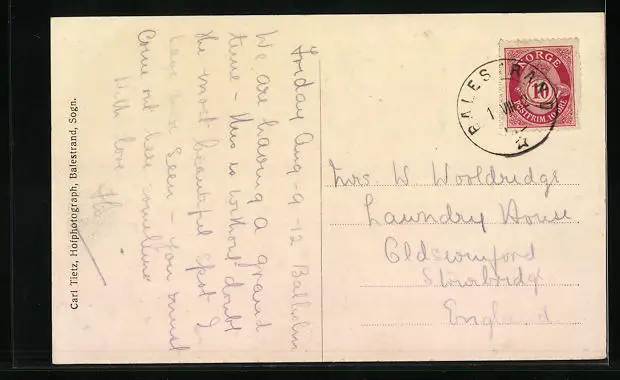 Friday Aug - 9 - 12 Balholm
We are having a grand
time - this is without doubt
the most beautiful spot I
have ever seen - you must
Come out here sometime
With love
Mrs W. Wooldridge
Laundry House
Oldswinford
Stourbridge
England
NORGE
10
POSTFRIM. 10 ØRE
BALESTRAND
1 VIII
Carl Tietz, Hofphotograph, Balestrand, Sogn.